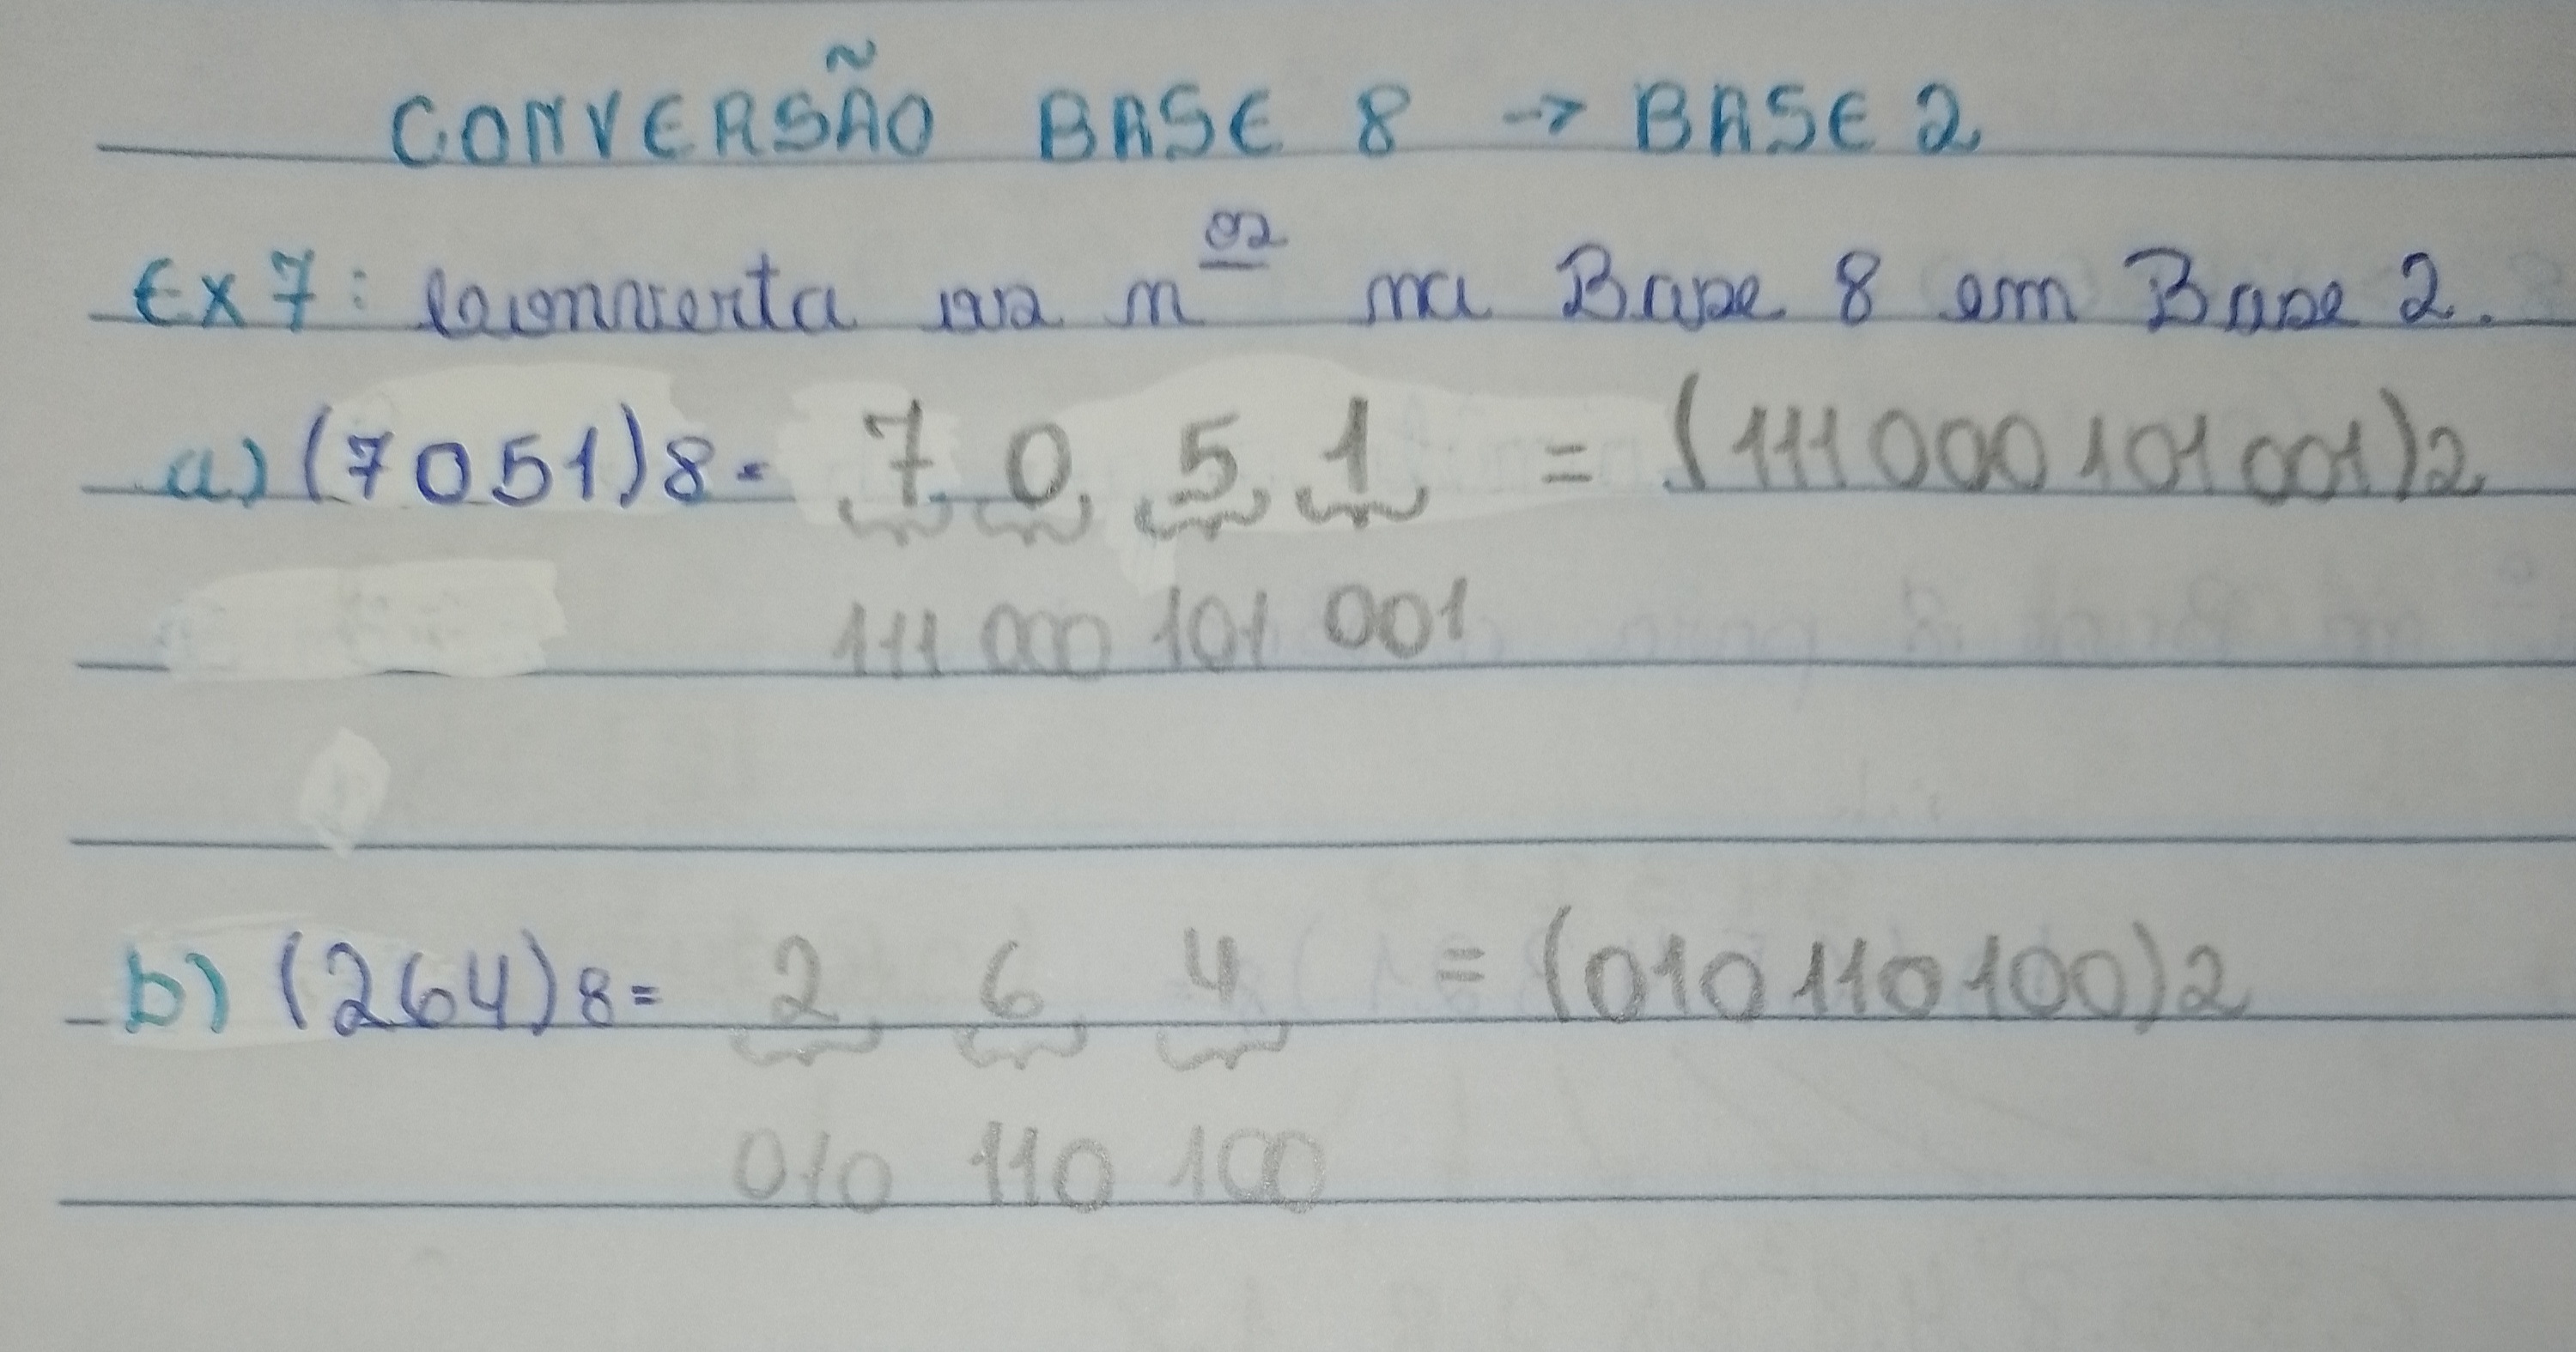 CONVERSÃO BASE 8 → BASE 2
Ex 7: Converta os nos na Base 8 em Base 2.
a) (7051)8 = 7 0 5 1 = (111000101001)2
111 000 101 001
b) (264)8 = 2 6 4 = (010110100)2
010 110 100